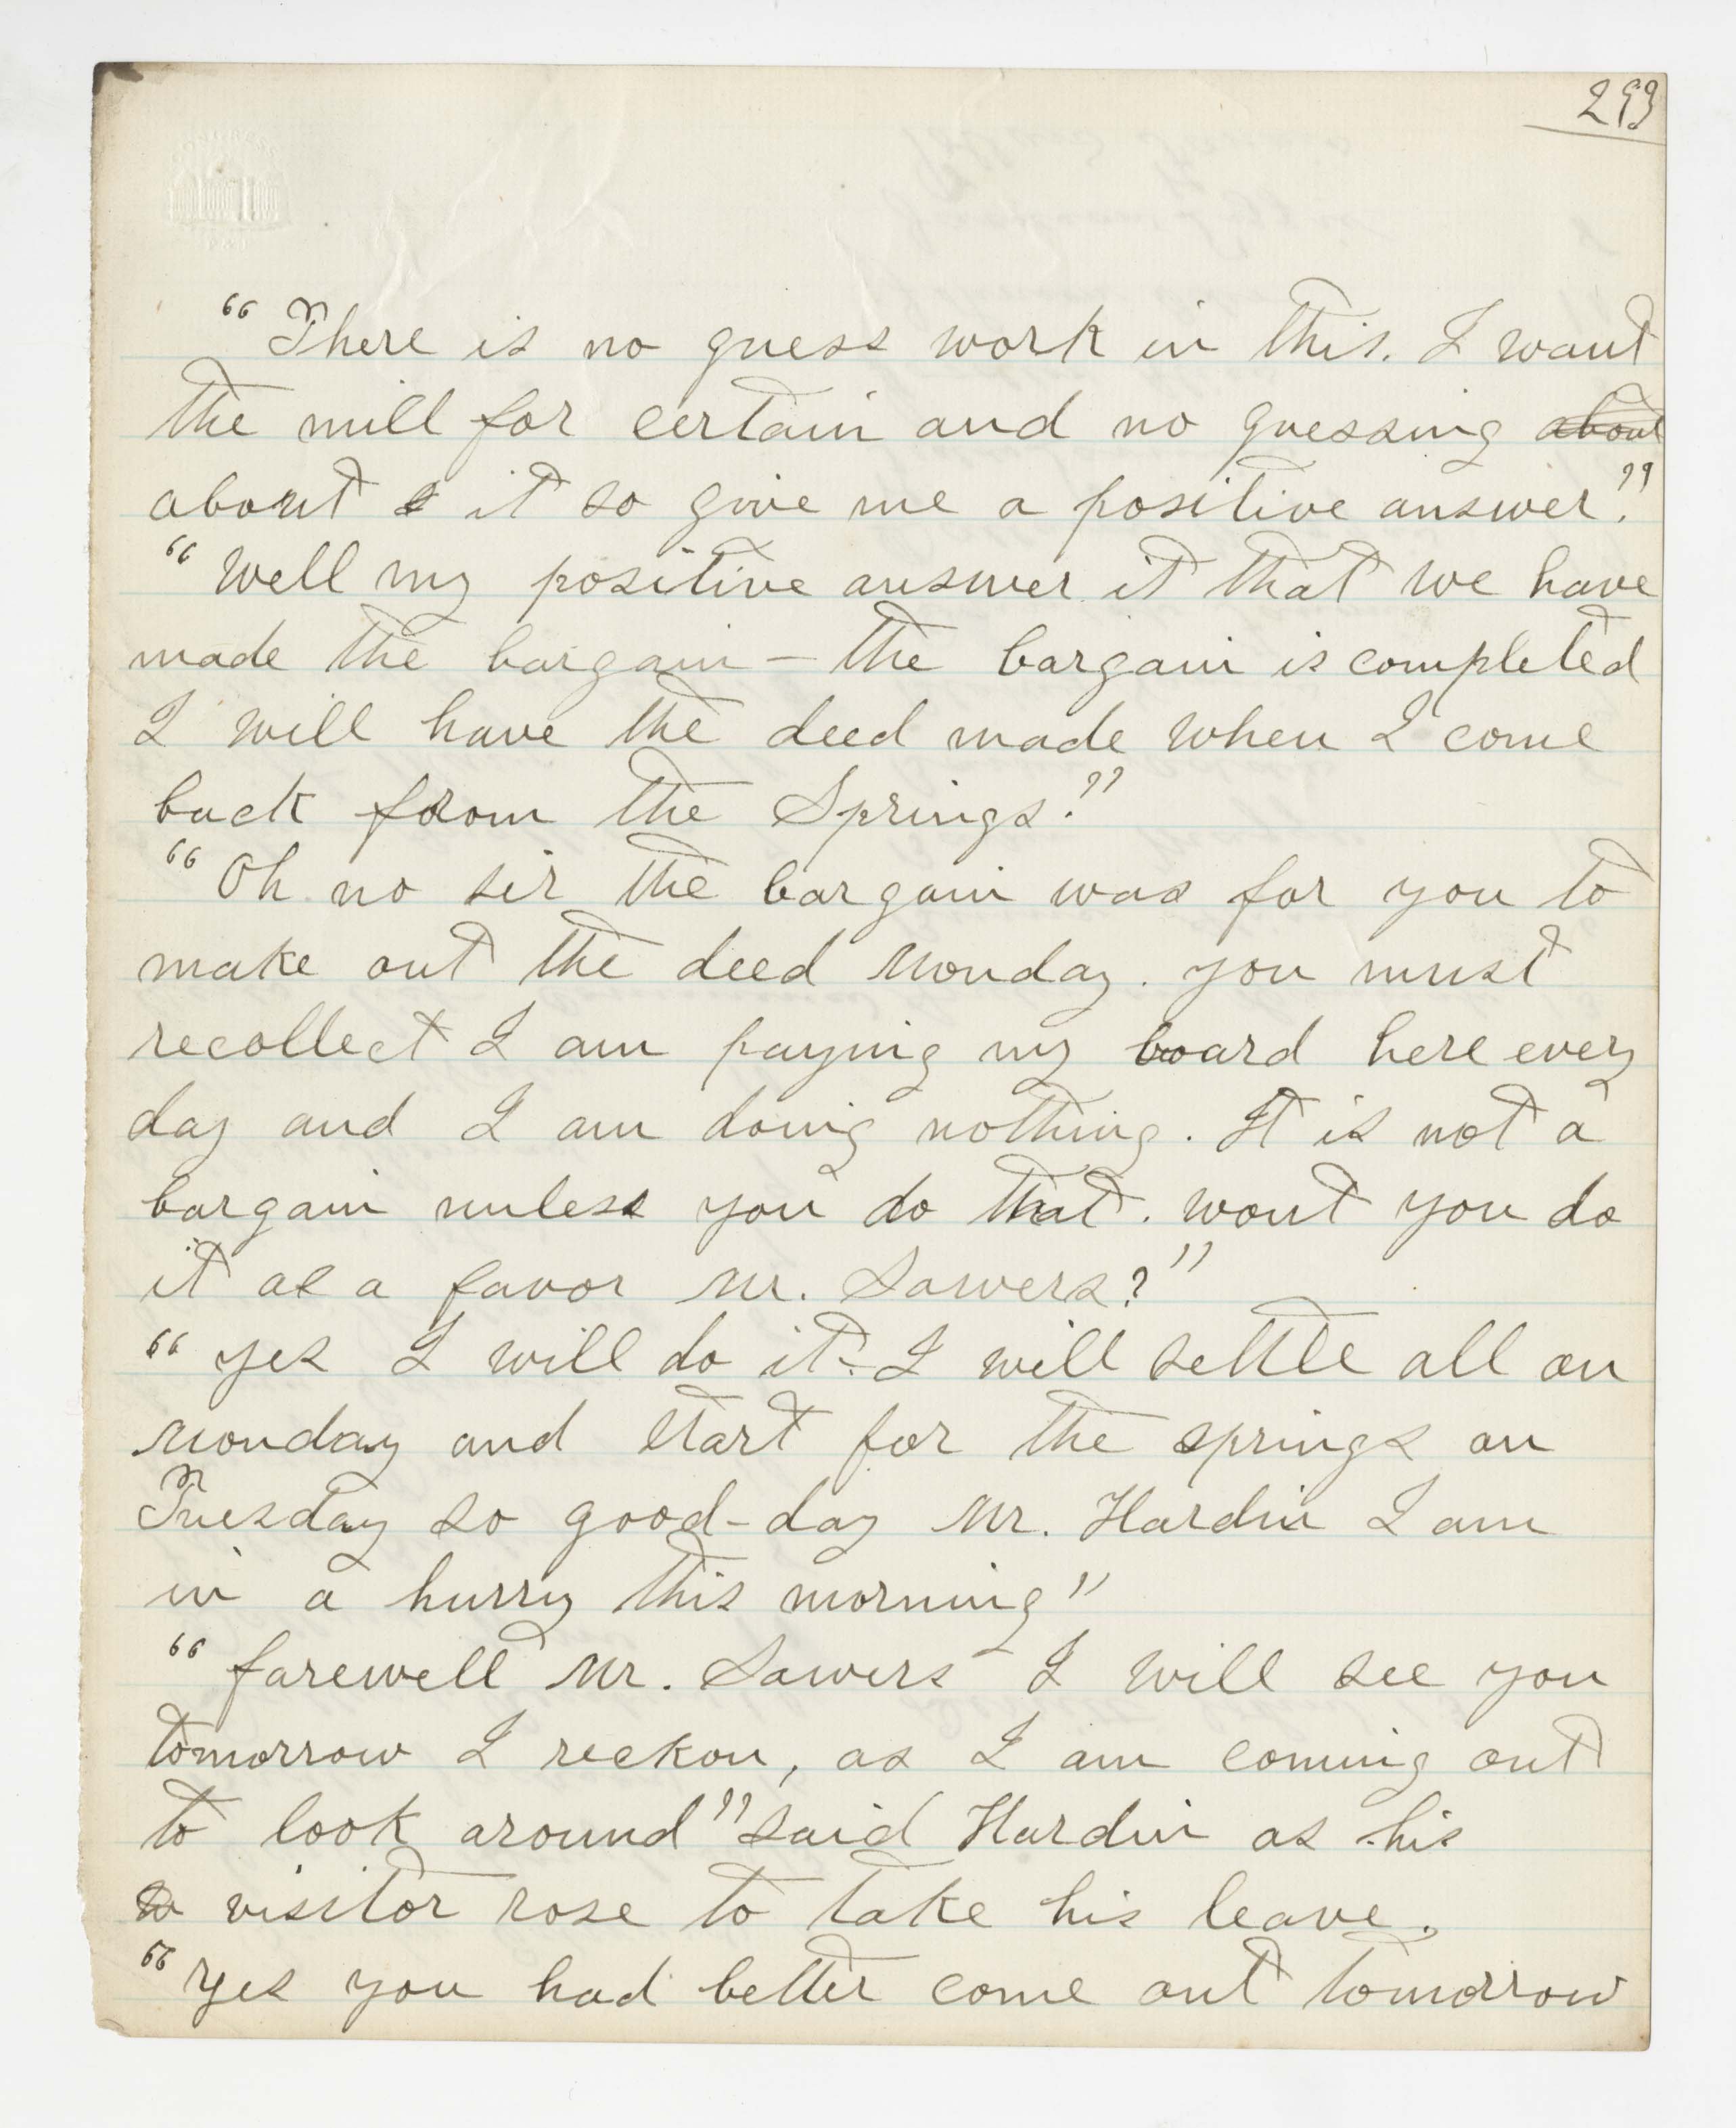 293
"There is no guess work in this. I want
the mill for certain and no guessing about
about it so give me a positive answer."
"Well my positive answer it that we have
made the bargain – the bargain is completed
I will have the deed made when I come
back from the Springs."
"Oh no sir the bargain was for you to
make out the deed Monday. you must
recollect I am paying my board here every
day and I am doing nothing. It is not a
bargain unless you do that. wont you do
it as a favor Mr. Sowers?"
"yes I will do it – I will settle all on
Monday and start for the springs on
Tuesday so good-day Mr. Hardin I am
in a hurry this morning"
"farewell Mr. Sowers I will see you
tomorrow I reckon, as I am coming out
to look around" said Hardin as his
visitor rose to take his leave.
"Yes you had better come out tomorrow